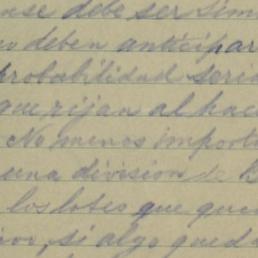 debe ser sim
deben anticipar
probabilidad seria
que rijan al hace
No menos import
una division de
los lotes que que
si algo queda